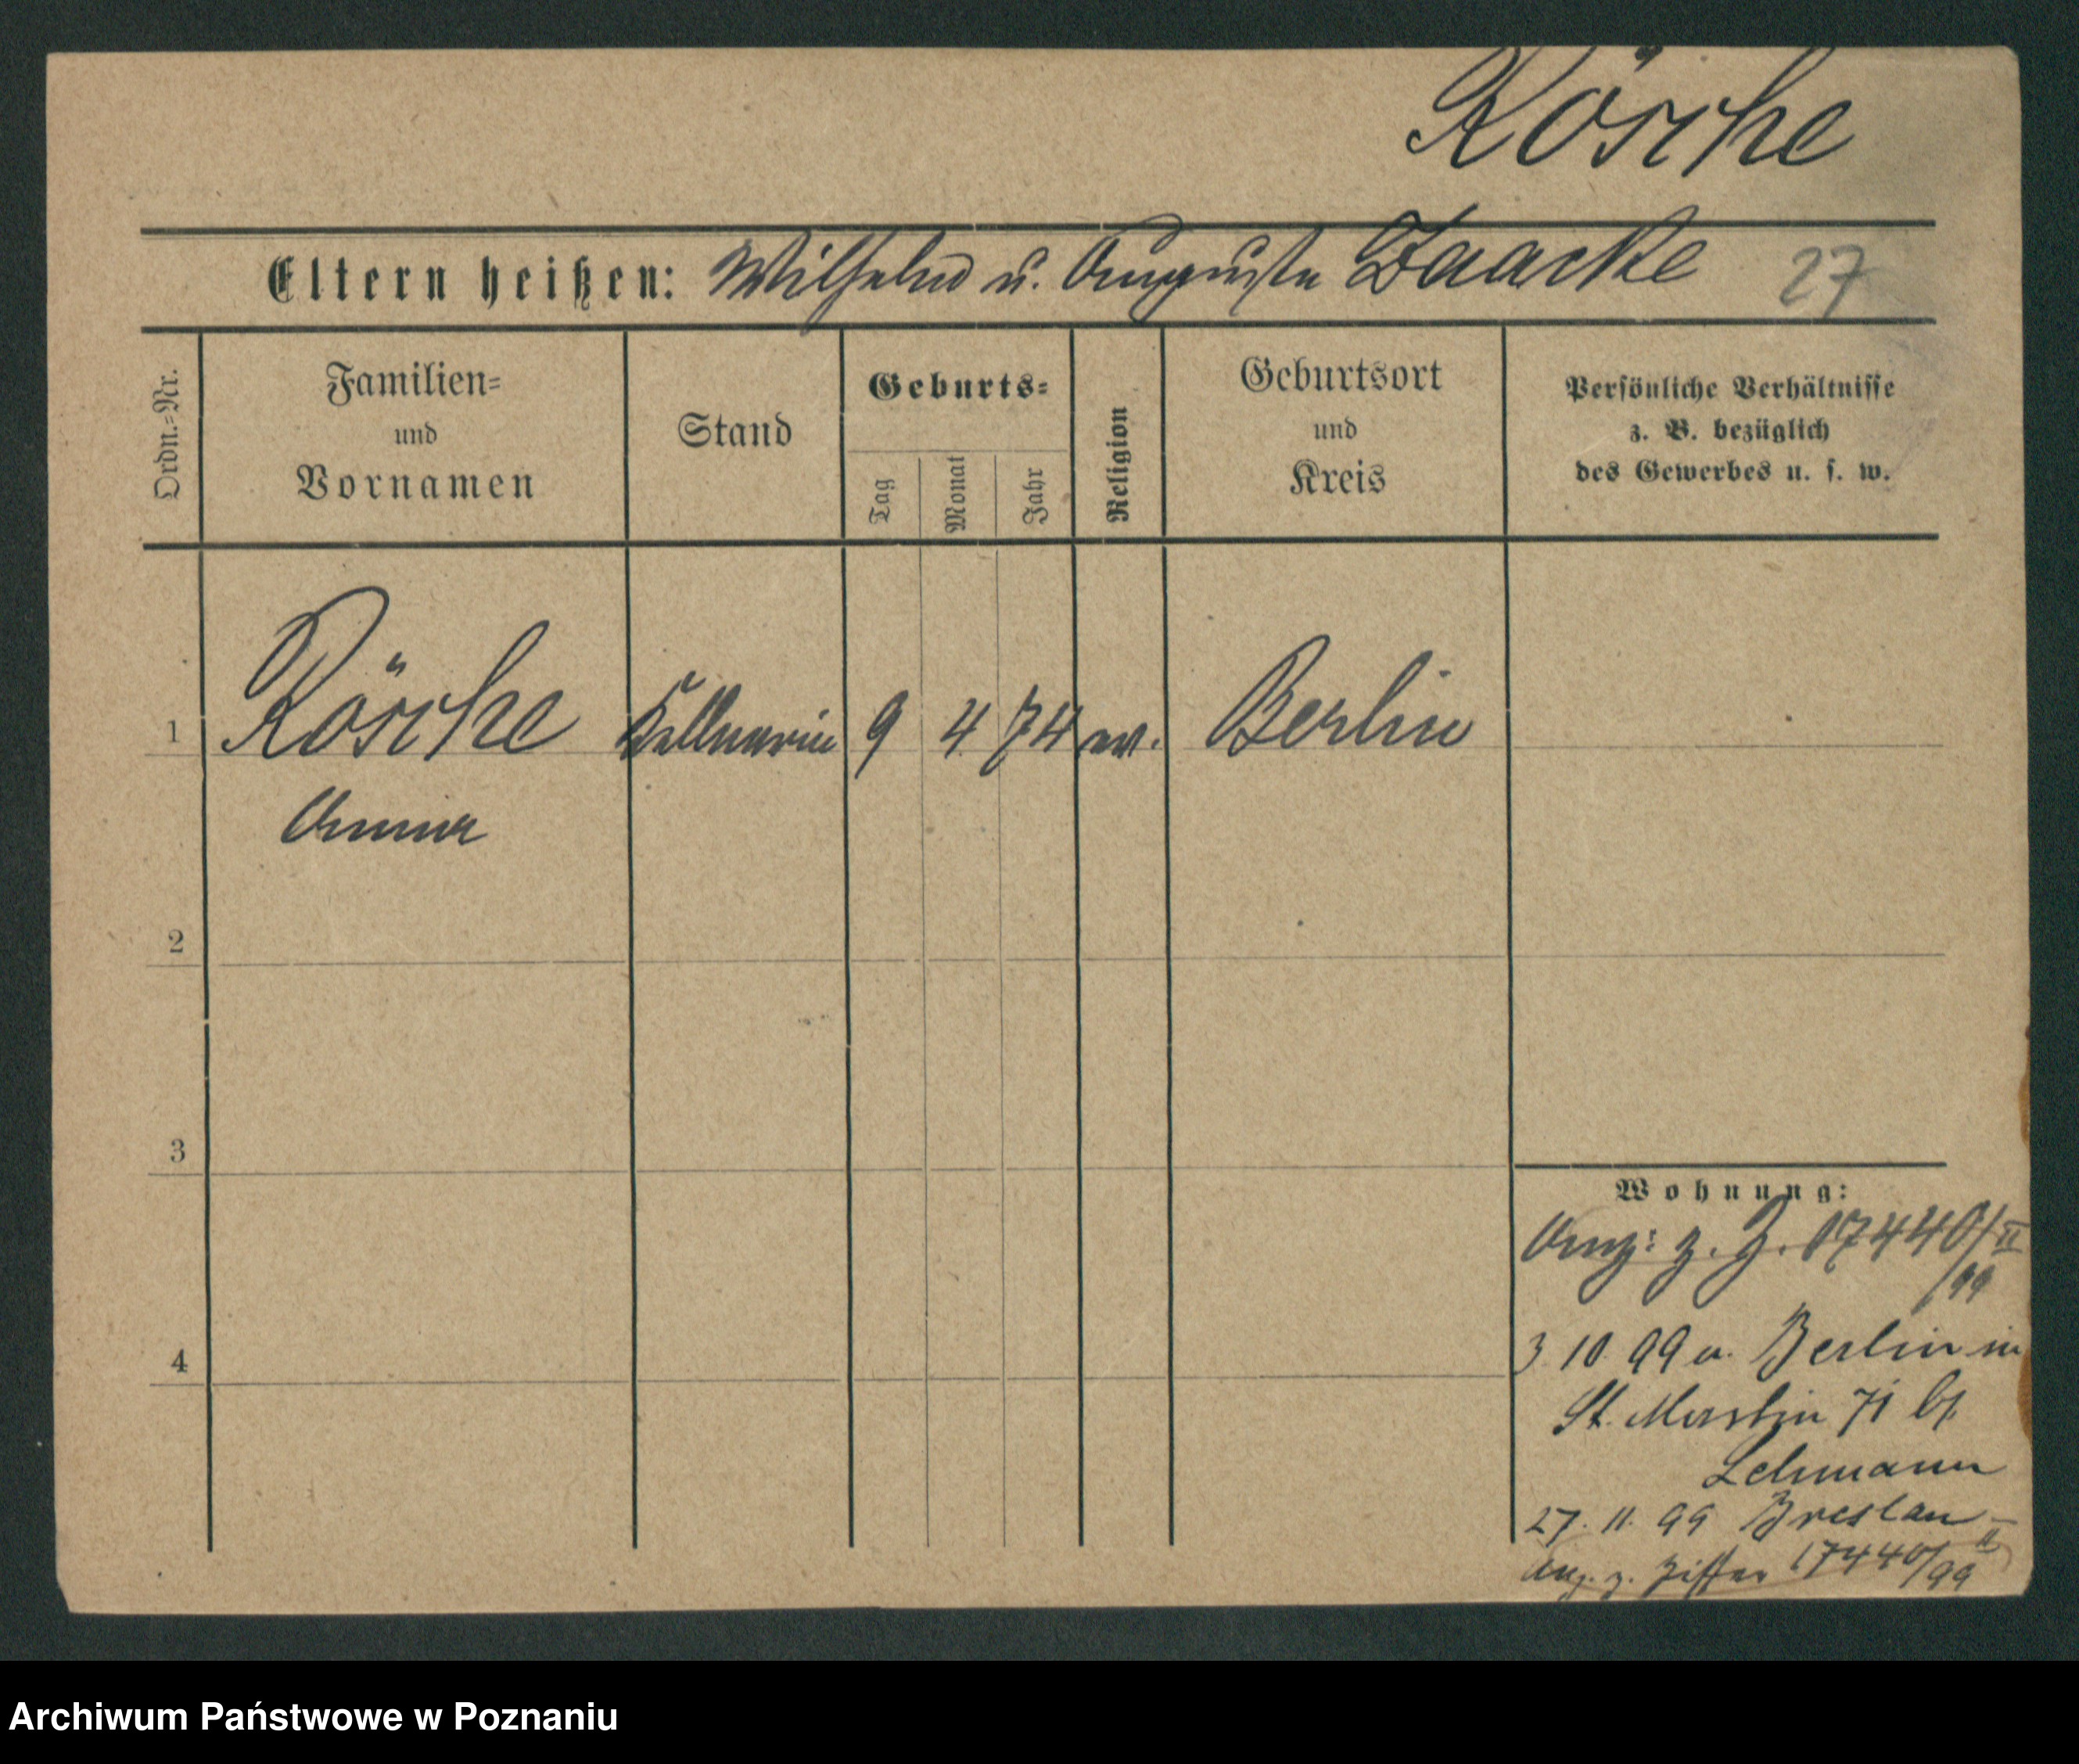 Rösche
Eltern heißen: Wilhelm u. Auguste Zaacke 27
Ordn.=Nr.
Familien=
und
Vornamen
Stand
Geburts=
Tag
Monat
Jahr
Religion
Geburtsort
und
Kreis
Persönliche Verhältnisse
z. B. bezüglich
des Gewerbes u. s. w.
1 Rösche Kellnerin 9 4 74 ev. Berlin
Anna
2
3
4
Wohnung:
Anz: z. Z. 17440/II
/99
3 10 99 v. Berlin in
St. Martin 71 bf.
Lehmann
27. 11. 99 Breslau
Anz. z. Ziffer 17440/99 II
Archiwum Państwowe w Poznaniu